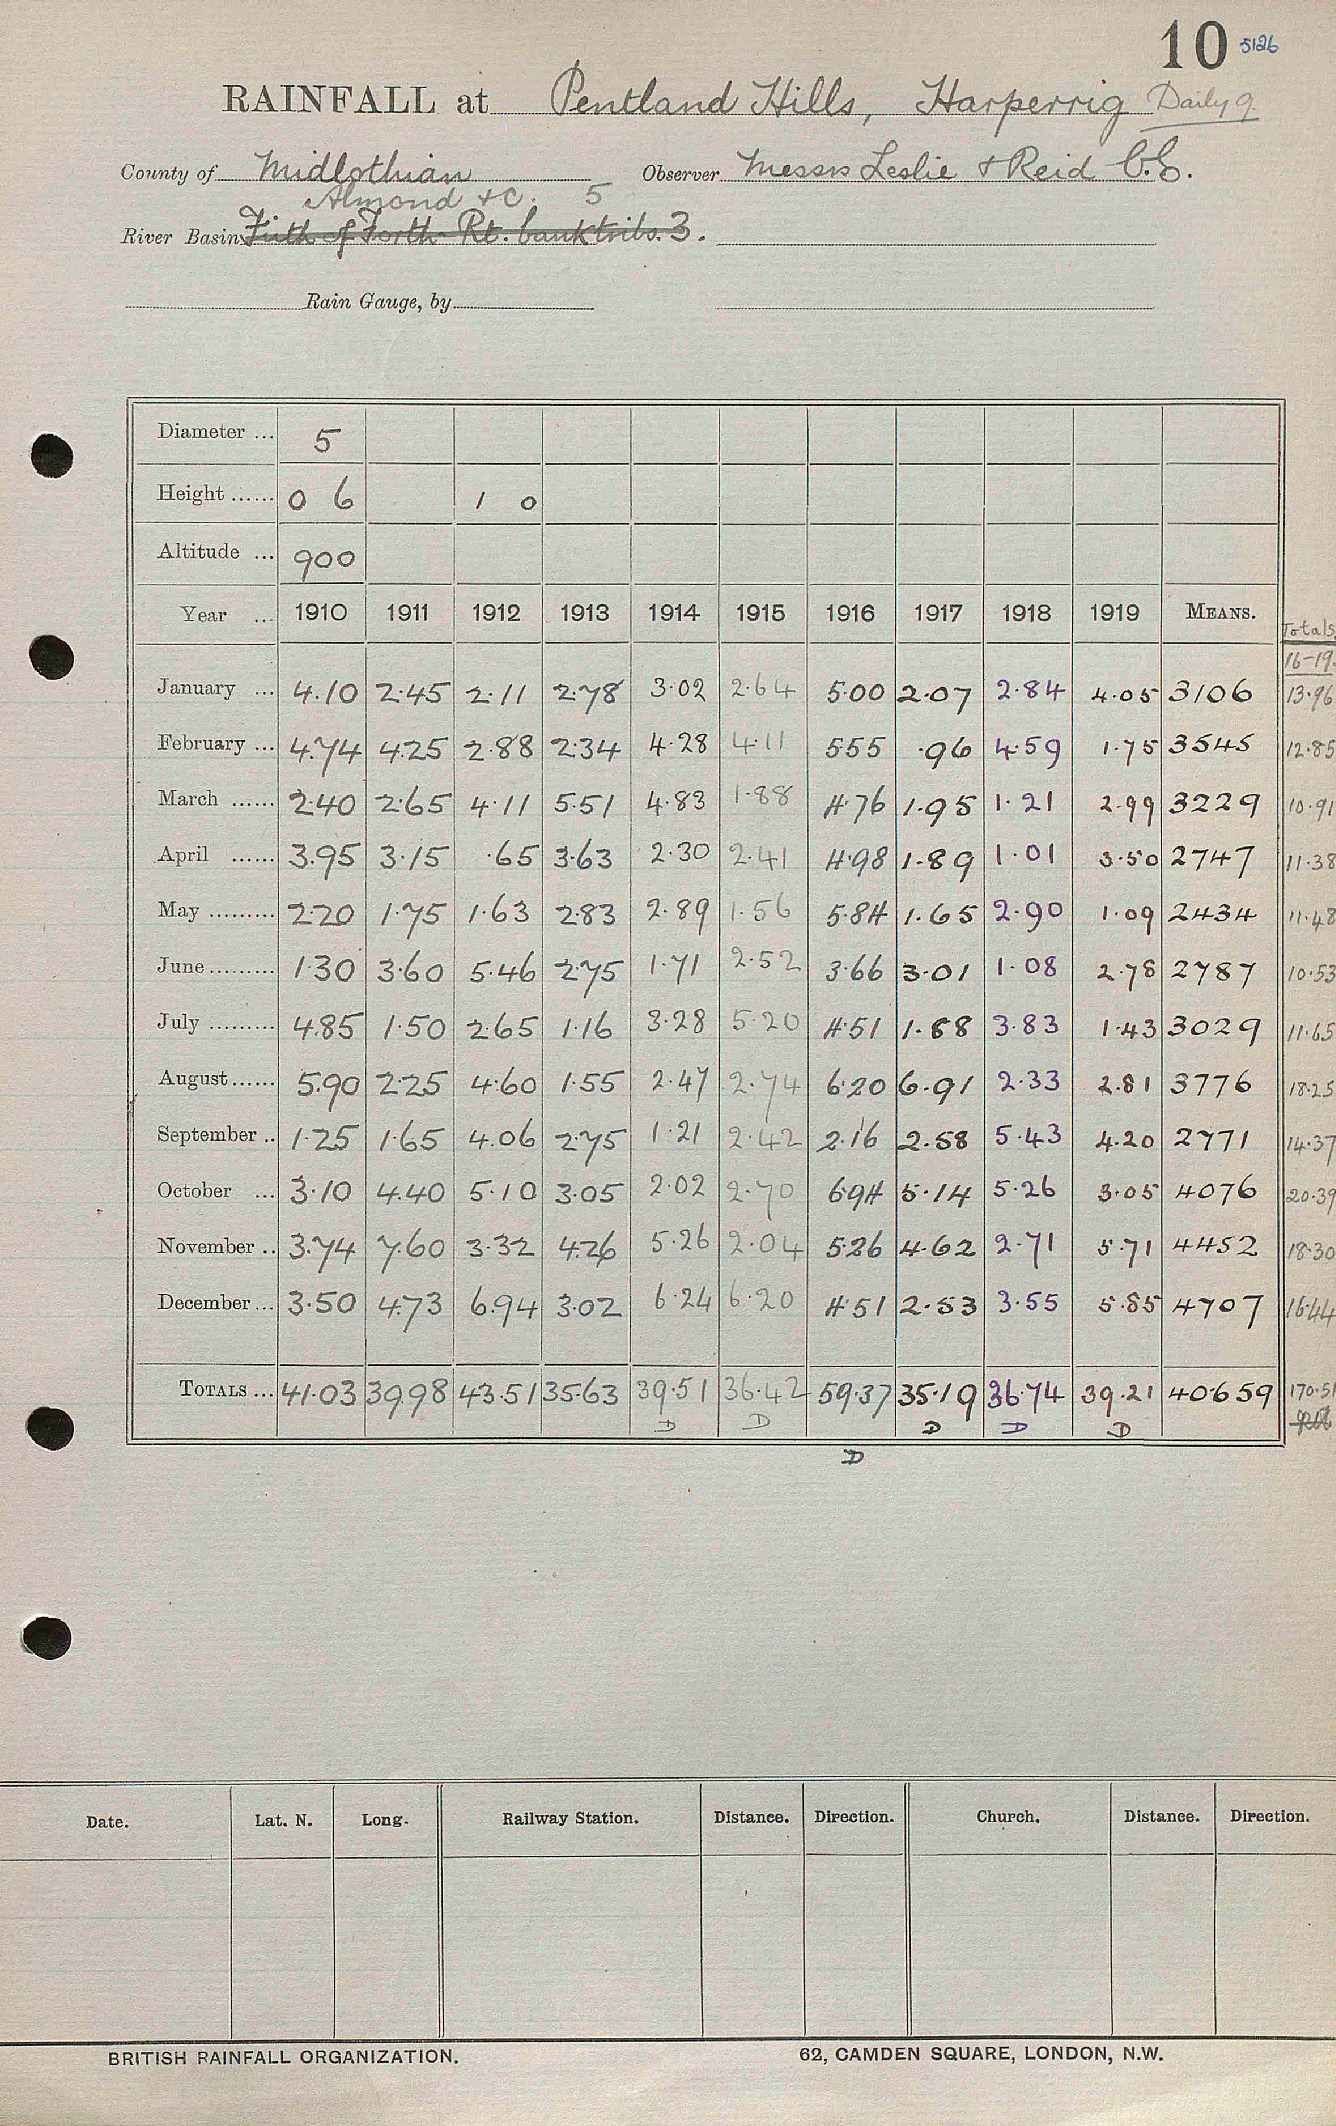 10 5126
RAINFALL at Pentland Hills, Harperrig Daily 9.
County of Midlothian Observer Messrs Leslie & Reid C.E.
Almond &c. 5
River Basin Firth of Forth Rt. bank tribs. 3.
Rain Gauge, by
Diameter ... 5
Height ...... 0 6 1 0
Altitude ... 900
Year ... 1910 1911 1912 1913 1914 1915 1916 1917 1918 1919 MEANS. Totals
16-19.
January ... 4.10 2.45 2.11 2.78 3.02 2.64 5.00 2.07 2.84 4.05 3106 13.96
February ... 4.74 4.25 2.88 2.34 4.28 4.11 5.55 .96 4.59 1.75 3545 12.85
March ...... 2.40 2.65 4.11 5.51 4.83 1.88 4.76 1.95 1.21 2.99 3229 10.91
April ...... 3.95 3.15 .65 3.63 2.30 2.41 4.98 1.89 1.01 3.50 2747 11.38
May ......... 2.20 1.75 1.63 2.83 2.89 1.56 5.84 1.65 2.90 1.09 2434 11.48
June ......... 1.30 3.60 5.46 2.75 1.71 2.52 3.66 3.01 1.08 2.78 2787 10.53
July ......... 4.85 1.50 2.65 1.16 3.28 5.20 4.51 1.88 3.83 1.43 3029 11.65
August ...... 5.90 2.25 4.60 1.55 2.47 2.74 6.20 6.91 2.33 2.81 3776 18.25
September .. 1.25 1.65 4.06 2.75 1.21 2.42 2.16 2.58 5.43 4.20 2771 14.37
October ... 3.10 4.40 5.10 3.05 2.02 2.70 6.94 5.14 5.26 3.05 4076 20.39
November .. 3.74 7.60 3.32 4.26 5.26 2.04 5.26 4.62 2.71 5.71 4452 18.30
December ... 3.50 4.73 6.94 3.02 6.24 6.20 4.51 2.53 3.55 5.85 4707 16.44
TOTALS ... 41.03 39.98 43.51 35.63 39.51 36.42 59.37 35.19 36.74 39.21 40659 170.51
D D D D D
D
Date. Lat. N. Long. Railway Station. Distance. Direction. Church. Distance. Direction.
BRITISH RAINFALL ORGANIZATION. 62, CAMDEN SQUARE, LONDON, N.W.